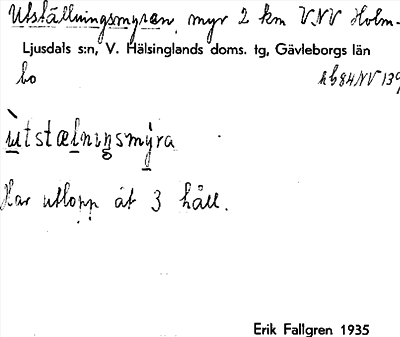 Utställningsmyran, myr 2 km VNV Holm-
Ljusdals s:n, V. Hälsinglands doms. tg, Gävleborgs län
bo
ùtstælniŋsmýra
Har utlopp åt 3 håll.
Erik Fallgren 1935